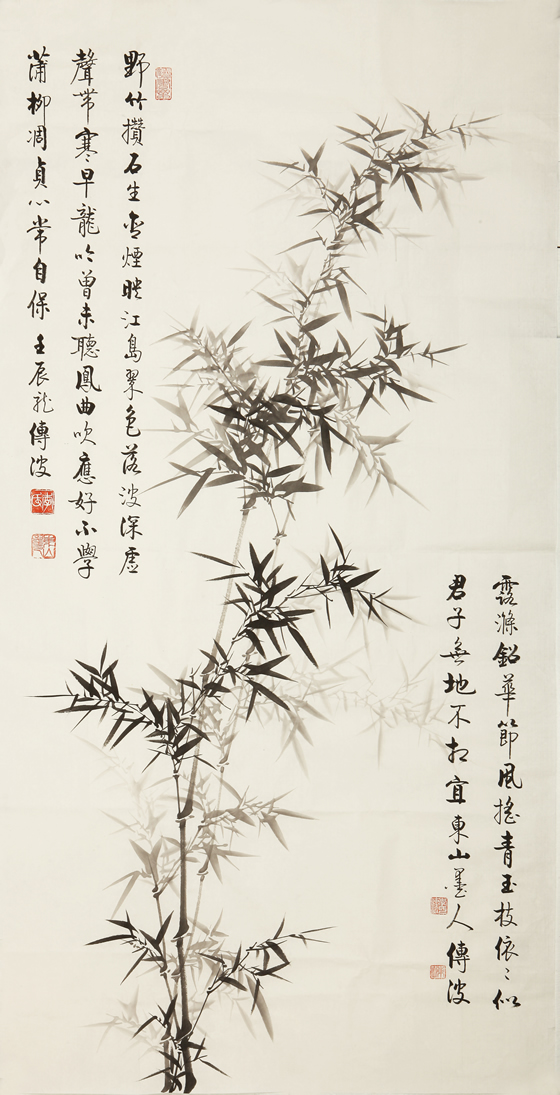 露滌鉛華節風搖青玉枝依〻似
君子無地不相宜東山墨人傳波
野竹攢石生含煙映江島翠色落波深虛
聲帶寒早龍吟曾未聽鳳曲吹應好不學
蒲柳凋貞心常自保壬辰龍傳波